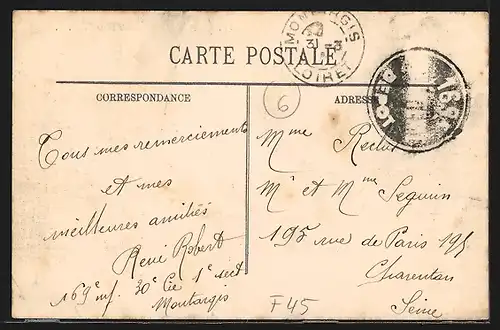 MONTARGIS
31 -3
LOIRET
CARTE POSTALE
CORRESPONDANCE
ADRESSE
6
Tous mes remerciements
et mes
meilleures amitiés
René Robert
169e inf. 30e Cie 1e sect
Montargis
Mme Reclus
Mr et Mme Seguin
195 rue de Paris 195
Charenton
Seine
F45